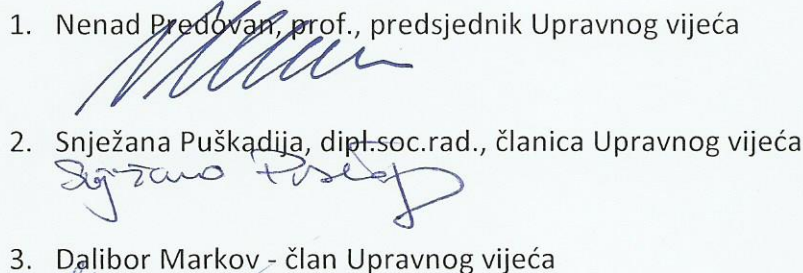 1. Nenad Predovan, prof., predsjednik Upravnog vijeća
2. Snježana Puškadija, dipl.soc.rad., članica Upravnog vijeća
3. Dalibor Markov - član Upravnog vijeća